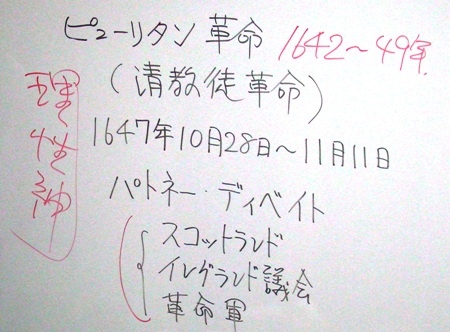 ピューリタン革命 1642〜49年
(清教徒革命)
1647年10月28日〜11月11日
パトネー・ディベイト
スコットランド
イングランド議会
革命軍
理性神